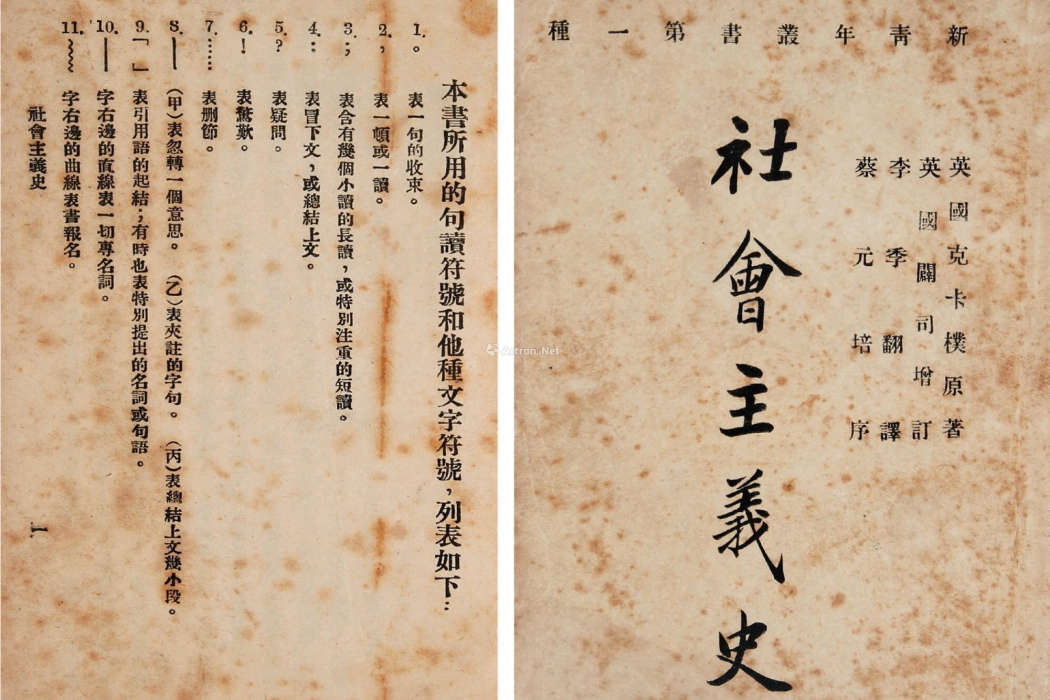 新青年叢書第一種
英國克卡樸原著
英國闢司增訂
李季翻譯
蔡元培序
社會主義史
本書所用的句讀符號和他種文字符號，列表如下：
1. 。 表一句的收束。
2. ， 表一頓或一讀。
3. ； 表含有幾個小讀的長讀，或特別注重的短讀。
4. ： 表冒下文，或總結上文。
5. ？ 表疑問。
6. ！ 表驚歎。
7. …… 表刪節。
8. —— （甲）表忽轉一個意思。（乙）表夾註的字句。（丙）表總結上文幾小段。
9. 「 」 表引用語的起結；有時也表特別提出的名詞或句語。
10. —— 字右邊的直線表一切專名詞。
11. ﹏﹏ 字右邊的曲線表書報名。
社會主義史
一
Artron.Net